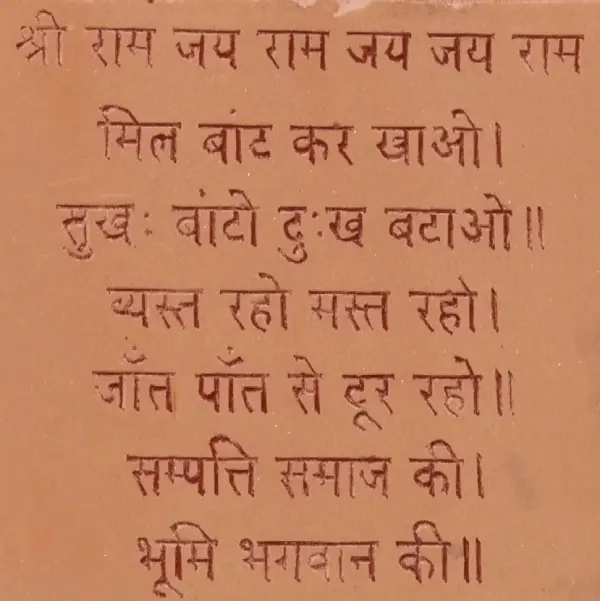 श्री राम जय राम जय जय राम
मिल बांट कर खाओ।
सुखः बांटो दुःख बटाओ॥
व्यस्त रहो मस्त रहो।
जाँत पाँत से दूर रहो॥
सम्पत्ति समाज की।
भूमि भगवान की॥